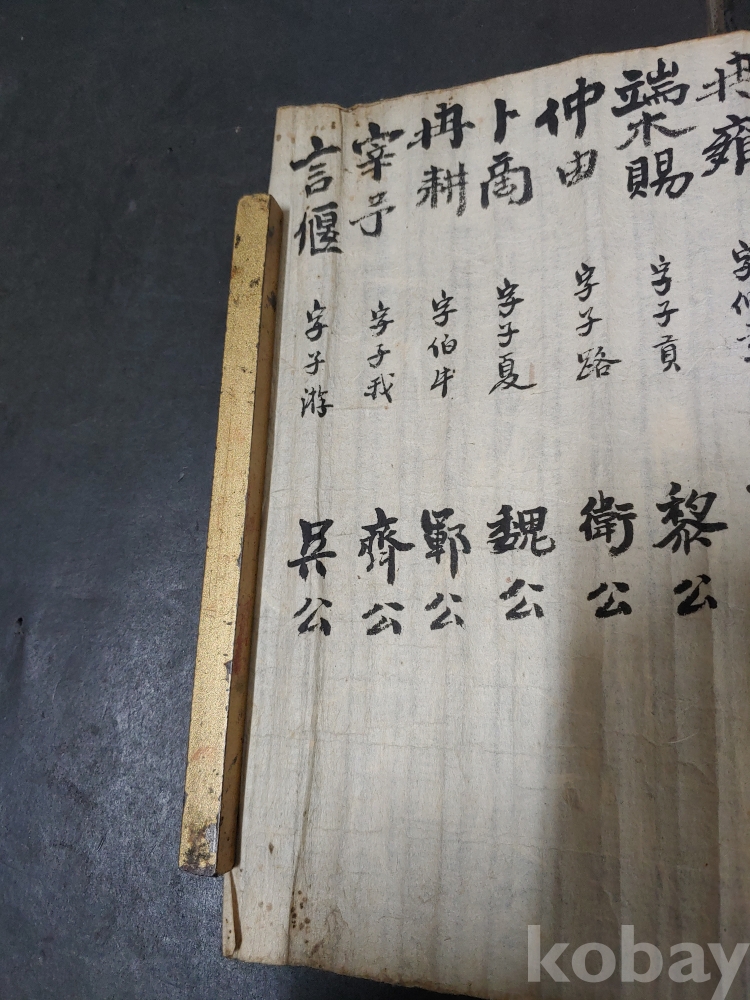 冉雍 字
端木賜 字子貢 黎公
仲由 字子路 衛公
卜商 字子夏 魏公
冉耕 字伯牛 鄆公
宰予 字子我 齊公
言偃 字子游 吳公
kobay